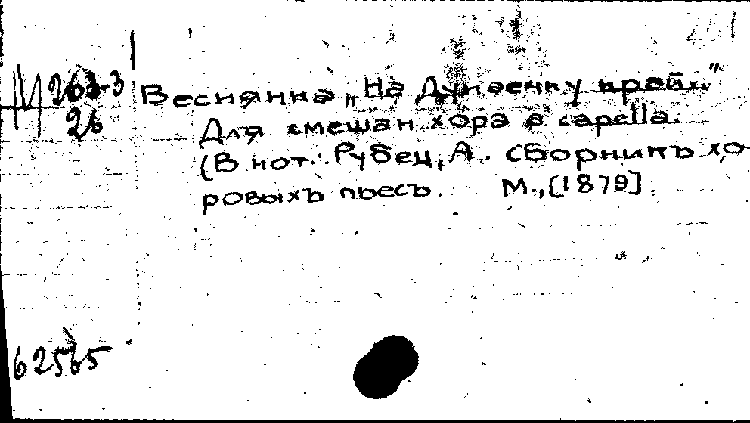 М 263-3
26
Веснянка „На Дунаечку край.."
Для смешан. хора a capella.
(В нот.: Рубец, А. Сборникъ хо-
ровыхъ пьесъ. М., [1879].
62565